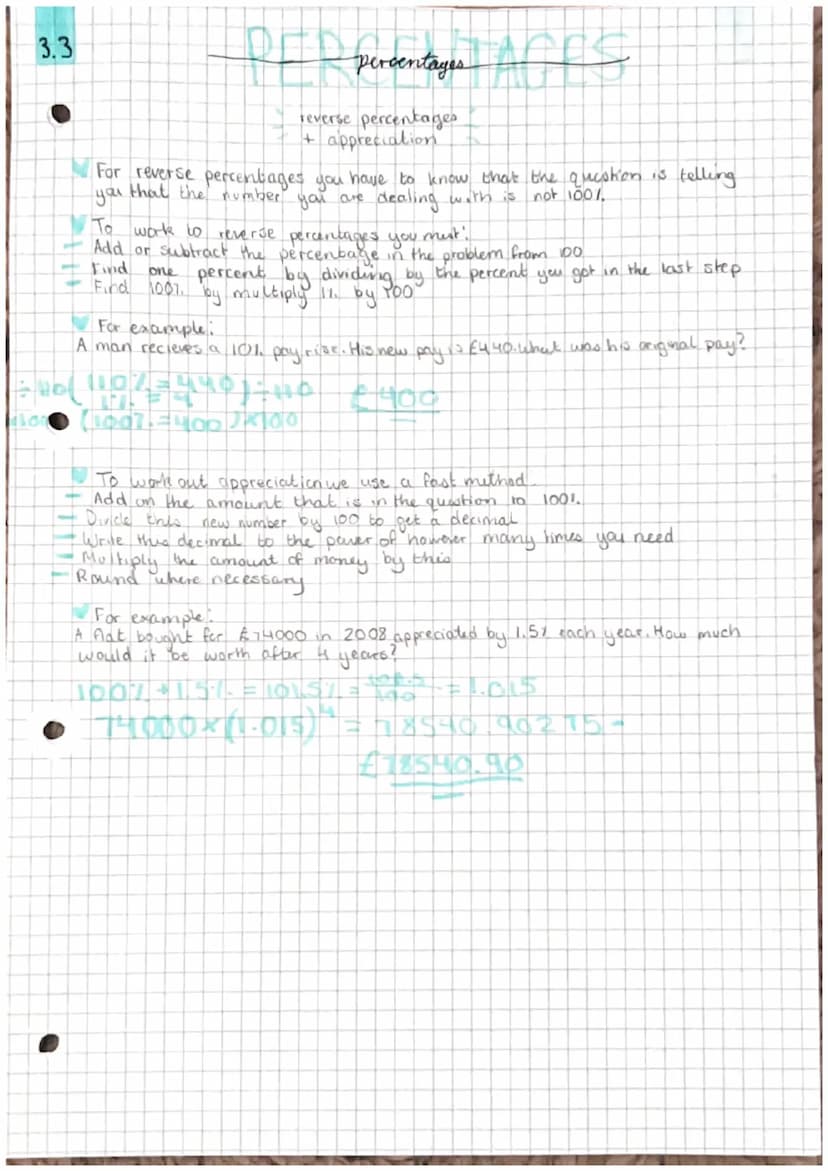 3.3
PERCENTAGES
percentages
reverse percentages
+ appreciation
For reverse percentages you have to know that the question is telling
you that the number you are dealing with is not 100%.
To work to reverse percentages you must:
Add or subtract the percentage in the problem from 100
Find one percent by dividing by the percent you got in the last step
Find 100% by multiply 1% by 100
For example:
A man recieves a 10% pay rise. His new pay is £440. What was his original pay?
÷110 ( 110% = 440 ) ÷110 £400
1% = 4
×100 ( 100% = 400 ) ×100
To work out appreciation we use a fast method
Add on the amount that is in the question to 100%.
Divide this new number by 100 to get a decimal
Write this decimal to the power of however many times you need
Multiply the amount of money by this
Round where necessary
For example:
A flat bought for £74000 in 2008 appreciated by 1.5% each year. How much
would it be worth after 4 years?
100% + 1.5% = 101.5% = 101.5/100 = 1.015
74000 × (1.015)⁴ = 78540.90275 -
£78540.90